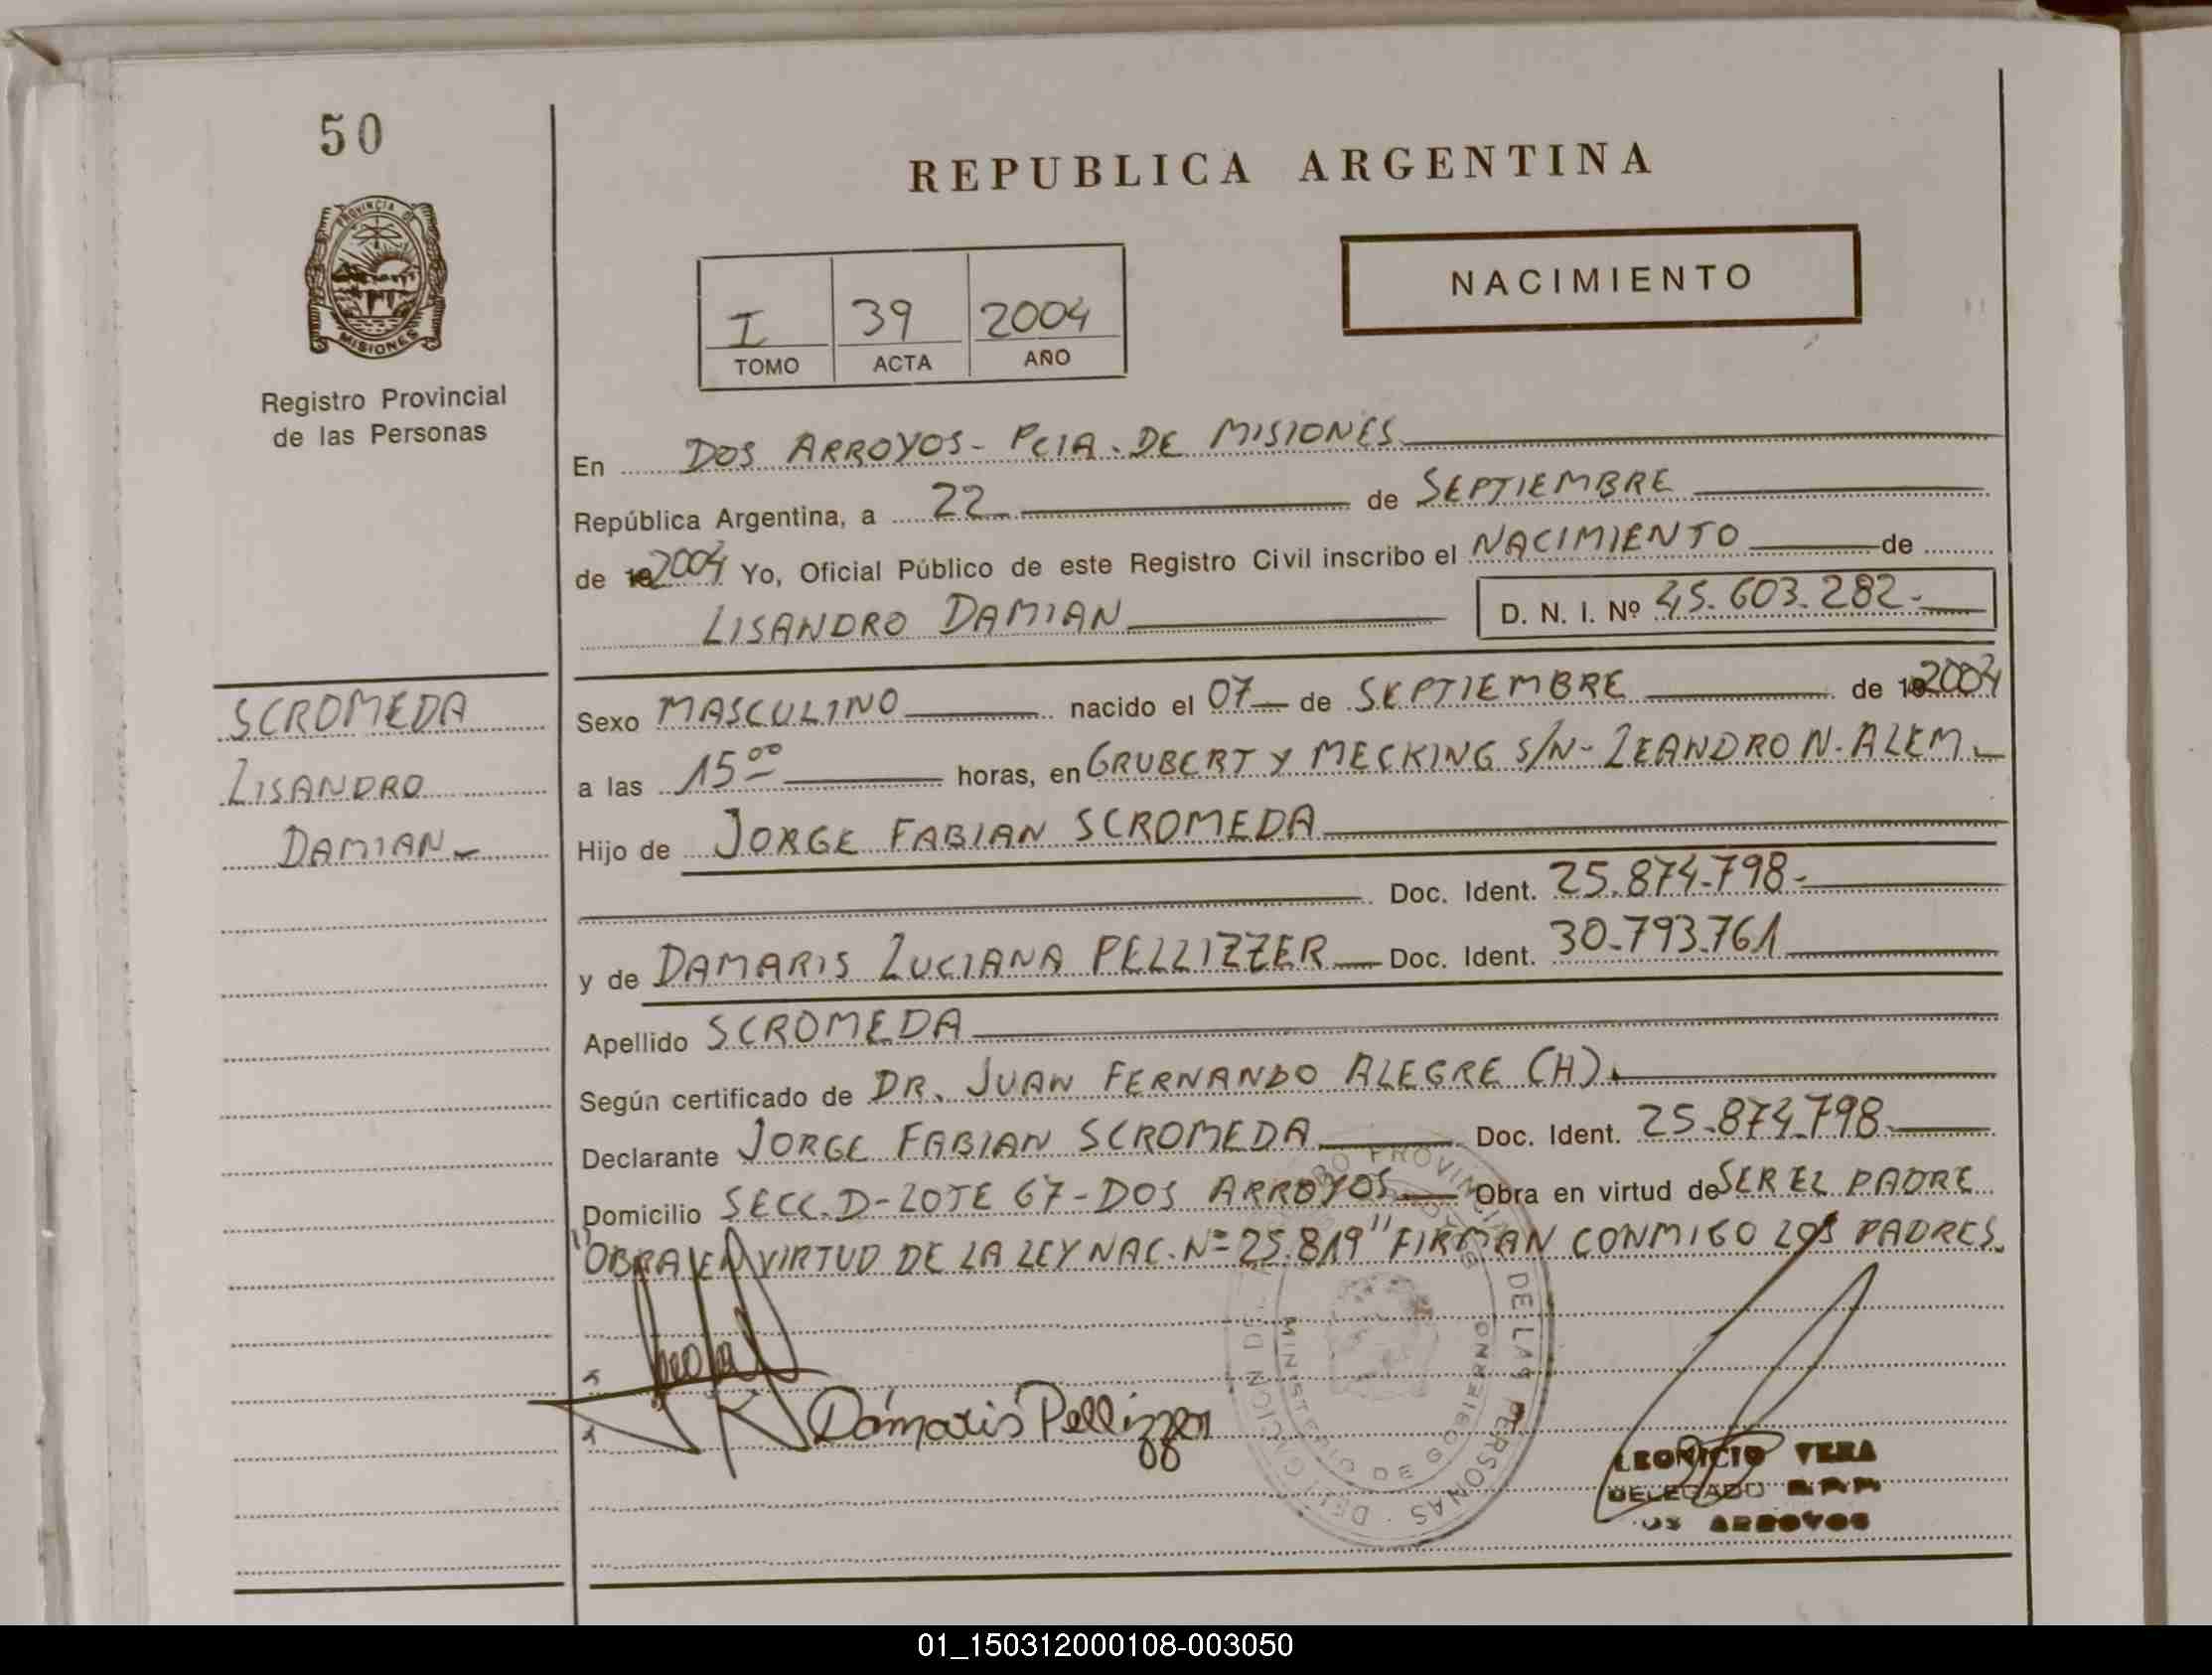 50
REPUBLICA ARGENTINA
PROVINCIA DE
MISIONES
NACIMIENTO
I 39 2004
TOMO ACTA AÑO
Registro Provincial
de las Personas
En DOS ARROYOS - PCIA. DE MISIONES
República Argentina, a 22 de SEPTIEMBRE
de 2004 Yo, Oficial Público de este Registro Civil inscribo el NACIMIENTO de
LISANDRO DAMIAN D. N. I. Nº 45.603.282.-
SCROMEDA
LISANDRO
DAMIAN
Sexo MASCULINO nacido el 07 de SEPTIEMBRE de 2004
a las 15 00 horas, en GRUBERT Y MECKING S/N - LEANDRO N. ALEM
Hijo de JORGE FABIAN SCROMEDA
Doc. Ident. 25.874.798.-
y de DAMARIS LUCIANA PELLIZZER Doc. Ident. 30.793.761
Apellido SCROMEDA
Según certificado de DR. JUAN FERNANDO ALEGRE (H).
Declarante JORGE FABIAN SCROMEDA Doc. Ident. 25.874.798
Domicilio SECC. D - LOTE 67 - DOS ARROYOS Obra en virtud de SER EL PADRE
"OBRA EN VIRTUD DE LA LEY NAC. Nº 25.819" FIRMAN CONMIGO LOS PADRES.
Dámaris Pellizzer
DE LAS PERSONAS
MINISTERIO DE GOBIERNO
LEONICIO VERA
DELEGADO
ARROYOS
01_150312000108-003050